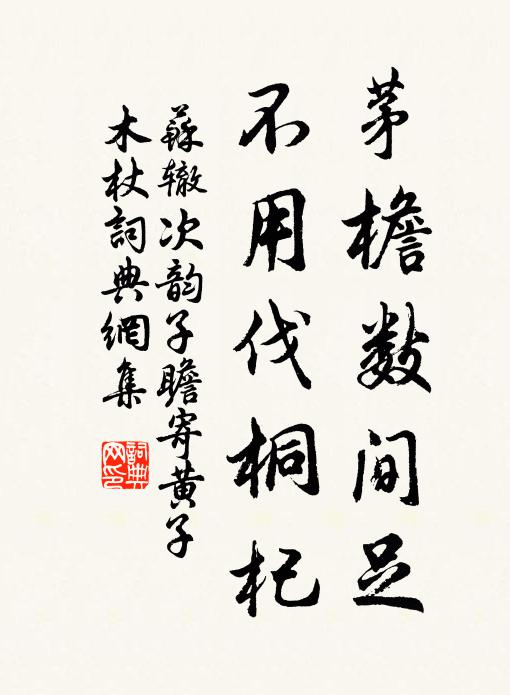 茅檐数间足
不用伐桐杞
苏辙次韵子瞻寄黄子
木杖詞典網集
詞典
网印